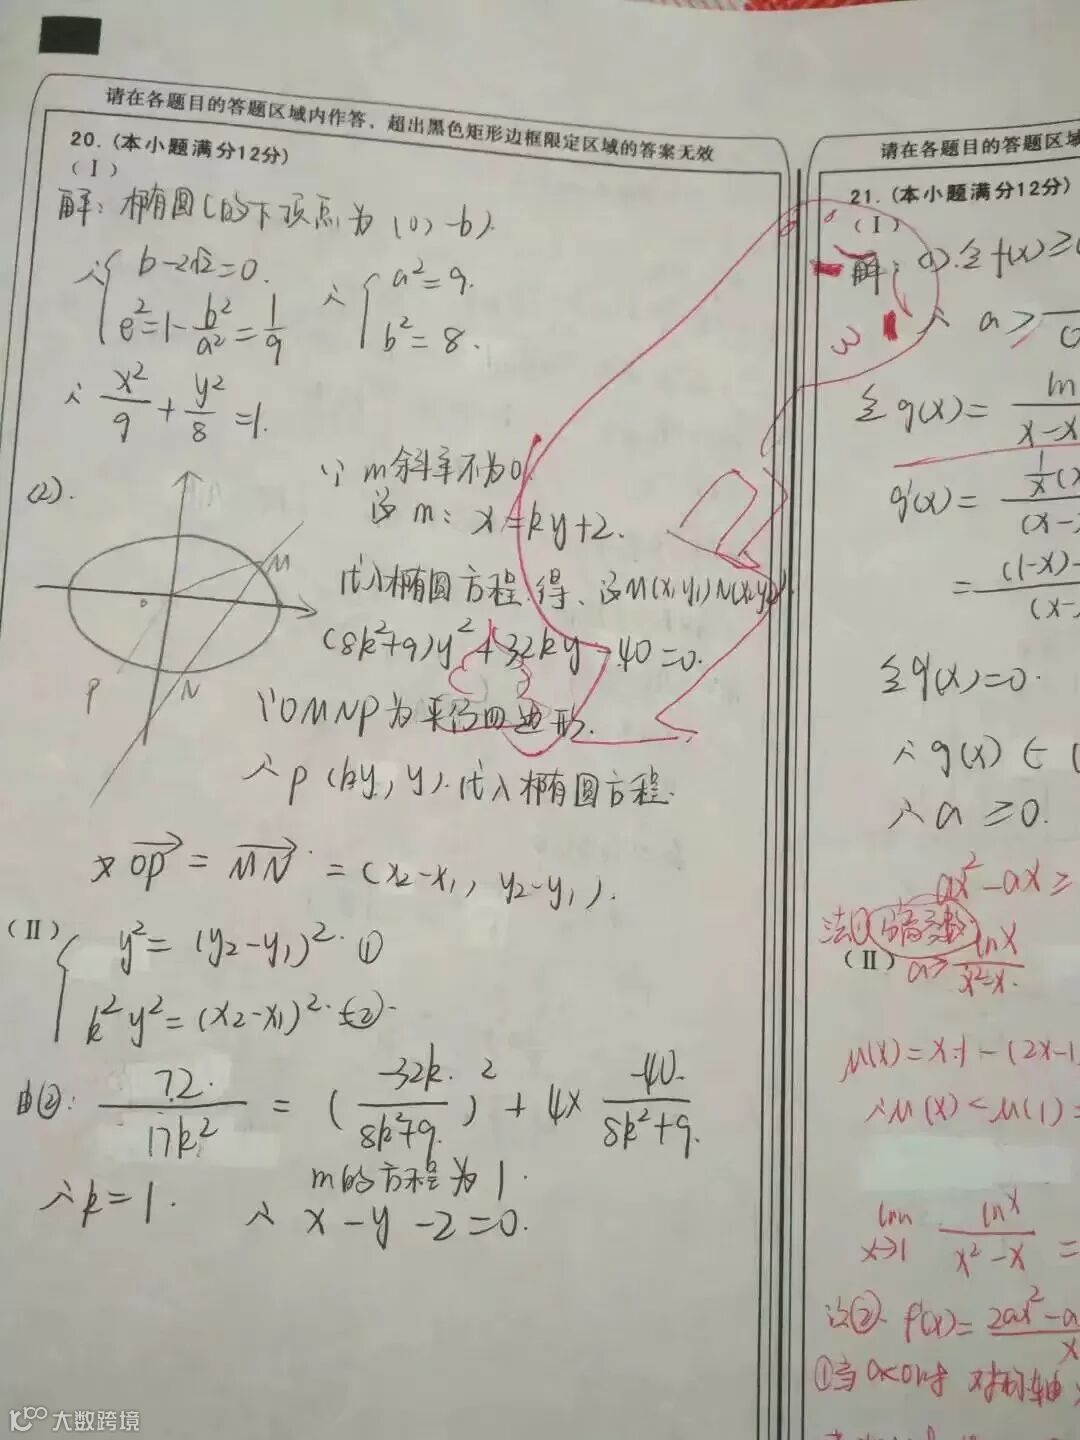 请在各题目的答题区域内作答，超出黑色矩形边框限定区域的答案无效
20.(本小题满分12分)
(Ⅰ)
解：椭圆C的下顶点为(0,-b).
∴{b-2√2=0. e²=1-b²/a²=1/9 ∴{a²=9. b²=8.
∴x²/9+y²/8=1.
(2).
∵m斜率不为0.
设m: x=ky+2.
代入椭圆方程.得、设M(x₁y₁)N(x₂y₂)
(8k²+9)y²+32ky-40=0.
∵OMNP为平行四边形.
∴P(ky,y).代入椭圆方程.
又OP=MN=(x₂-x₁, y₂-y₁).
(Ⅱ)
{y²=(y₂-y₁)²·①
k²y²=(x₂-x₁)²·②.
由②: 72/17k²=(-32k/8k²+9)²+4×-40/8k²+9.
∴k=1. m的方程为1.
∴x-y-2=0.
M
o
P
N
请在各题目的答题区域
21.(本小题满分12分)
(Ⅰ)
解：(1).全f(x)≥
∴a≥
全g(x)=ln/x-x
g'(x)=
=(1-x)-
全g'(x)=0.
∴g(x)
∴a≥0.
ax²-ax≥
法① 分离参数
(Ⅱ) a≥lnx/x²-x.
μ(x)=x-1-(2x-1
∴μ(x)<μ(1)=
lim x→1 lnx/x²-x=
法②. f'(x)=2ax²-a/x
①当a<0时 对称轴
大数跨境